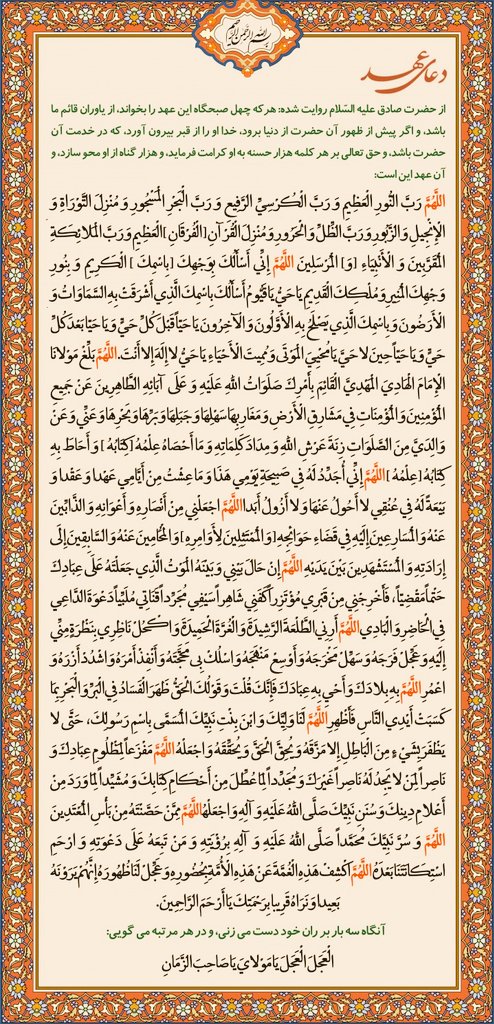 بسم الله الرحمن الرحیم
دعای عهد
از حضرت صادق علیه السّلام روایت شده: هر که چهل صبحگاه این عهد را بخواند، از یاوران قائم ما
باشد، و اگر پیش از ظهور آن حضرت از دنیا برود، خدا او را از قبر بیرون آورد، که در خدمت آن
حضرت باشد، و حق تعالی بر هر کلمه هزار حسنه به او کرامت فرماید، و هزار گناه از او محو سازد، و
آن عهد این است:
اللَّهُمَّ رَبَّ النُّورِ الْعَظِيمِ وَ رَبَّ الْكُرْسِيِّ الرَّفِيعِ وَ رَبَّ الْبَحْرِ الْمَسْجُورِ وَ مُنْزِلَ التَّوْرَاةِ وَ
الْإِنْجِيلِ وَ الزَّبُورِ وَ رَبَّ الظِّلِّ وَ الْحَرُورِ وَ مُنْزِلَ الْقُرْآنِ [الْفُرْقَانِ] الْعَظِيمِ وَ رَبَّ الْمَلائِكَةِ
الْمُقَرَّبِينَ وَ الْأَنْبِيَاءِ [وَ] الْمُرْسَلِينَ اللَّهُمَّ إِنِّي أَسْأَلُكَ بِوَجْهِكَ [بِاسْمِكَ] الْكَرِيمِ وَ بِنُورِ
وَجْهِكَ الْمُنِيرِ وَ مُلْكِكَ الْقَدِيمِ يَا حَيُّ يَا قَيُّومُ أَسْأَلُكَ بِاسْمِكَ الَّذِي أَشْرَقَتْ بِهِ السَّمَاوَاتُ وَ
الْأَرَضُونَ وَ بِاسْمِكَ الَّذِي يَصْلَحُ بِهِ الْأَوَّلُونَ وَ الْآخِرُونَ يَا حَيّاً قَبْلَ كُلِّ حَيٍّ وَ يَا حَيّاً بَعْدَ كُلِّ
حَيٍّ وَ يَا حَيّاً حِينَ لا حَيَّ يَا مُحْيِيَ الْمَوْتَى وَ مُمِيتَ الْأَحْيَاءِ يَا حَيُّ لا إِلَهَ إِلا أَنْتَ. اللَّهُمَّ بَلِّغْ مَوْلانَا
الْإِمَامَ الْهَادِيَ الْمَهْدِيَّ الْقَائِمَ بِأَمْرِكَ صَلَوَاتُ اللهِ عَلَيْهِ وَ عَلَى آبَائِهِ الطَّاهِرِينَ عَنْ جَمِيعِ
الْمُؤْمِنِينَ وَ الْمُؤْمِنَاتِ فِي مَشَارِقِ الْأَرْضِ وَ مَغَارِبِهَا سَهْلِهَا وَ جَبَلِهَا وَ بَرِّهَا وَ بَحْرِهَا وَ عَنِّي وَ عَنْ
وَالِدَيَّ مِنَ الصَّلَوَاتِ زِنَةَ عَرْشِ اللهِ وَ مِدَادَ كَلِمَاتِهِ وَ مَا أَحْصَاهُ عِلْمُهُ [كِتَابُهُ] وَ أَحَاطَ بِهِ
كِتَابُهُ [عِلْمُهُ] اللَّهُمَّ إِنِّي أُجَدِّدُ لَهُ فِي صَبِيحَةِ يَوْمِي هَذَا وَ مَا عِشْتُ مِنْ أَيَّامِي عَهْدا وَ عَقْدا وَ
بَيْعَةً لَهُ فِي عُنُقِي لا أَحُولُ عَنْهَا وَ لا أَزُولُ أَبَدا اللَّهُمَّ اجْعَلْنِي مِنْ أَنْصَارِهِ وَ أَعْوَانِهِ وَ الذَّابِّينَ
عَنْهُ وَ الْمُسَارِعِينَ إِلَيْهِ فِي قَضَاءِ حَوَائِجِهِ [وَ الْمُمْتَثِلِينَ لِأَوَامِرِهِ] وَ الْمُحَامِينَ عَنْهُ وَ السَّابِقِينَ إِلَى
إِرَادَتِهِ وَ الْمُسْتَشْهَدِينَ بَيْنَ يَدَيْهِ اللَّهُمَّ إِنْ حَالَ بَيْنِي وَ بَيْنَهُ الْمَوْتُ الَّذِي جَعَلْتَهُ عَلَى عِبَادِكَ
حَتْماً مَقْضِيّاً، فَأَخْرِجْنِي مِنْ قَبْرِي مُؤْتَزِراً كَفَنِي شَاهِراً سَيْفِي مُجَرِّداً قَنَاتِي مُلَبِّياً دَعْوَةَ الدَّاعِي
فِي الْحَاضِرِ وَ الْبَادِي اللَّهُمَّ أَرِنِي الطَّلْعَةَ الرَّشِيدَةَ وَ الْغُرَّةَ الْحَمِيدَةَ وَ اكْحُلْ نَاظِرِي بِنَظْرَةٍ مِنِّي
إِلَيْهِ وَ عَجِّلْ فَرَجَهُ وَ سَهِّلْ مَخْرَجَهُ وَ أَوْسِعْ مَنْهَجَهُ وَ اسْلُكْ بِي مَحَجَّتَهُ وَ أَنْفِذْ أَمْرَهُ وَ اشْدُدْ أَزْرَهُ وَ
اعْمُرِ اللَّهُمَّ بِهِ بِلادَكَ وَ أَحْيِ بِهِ عِبَادَكَ فَإِنَّكَ قُلْتَ وَ قَوْلُكَ الْحَقُّ ظَهَرَ الْفَسَادُ فِي الْبَرِّ وَ الْبَحْرِ بِمَا
كَسَبَتْ أَيْدِي النَّاسِ فَأَظْهِرِ اللَّهُمَّ لَنَا وَلِيَّكَ وَ ابْنَ بِنْتِ نَبِيِّكَ الْمُسَمَّى بِاسْمِ رَسُولِكَ، حَتَّى لا
يَظْفَرَ بِشَيْءٍ مِنَ الْبَاطِلِ إِلا مَزَّقَهُ وَ يُحِقَّ الْحَقَّ وَ يُحَقِّقَهُ وَ اجْعَلْهُ اللَّهُمَّ مَفْزَعاً لِمَظْلُومِ عِبَادِكَ وَ
نَاصِراً لِمَنْ لا يَجِدُ لَهُ نَاصِراً غَيْرَكَ وَ مُجَدِّداً لِمَا عُطِّلَ مِنْ أَحْكَامِ كِتَابِكَ وَ مُشَيِّداً لِمَا وَرَدَ مِنْ
أَعْلامِ دِينِكَ وَ سُنَنِ نَبِيِّكَ صَلَّى اللهُ عَلَيْهِ وَ آلِهِ وَ اجْعَلْهُ اللَّهُمَّ مِمَّنْ حَصَّنْتَهُ مِنْ بَأْسِ الْمُعْتَدِينَ
اللَّهُمَّ وَ سُرَّ نَبِيَّكَ مُحَمَّداً صَلَّى اللهُ عَلَيْهِ وَ آلِهِ بِرُؤْيَتِهِ وَ مَنْ تَبِعَهُ عَلَى دَعْوَتِهِ وَ ارْحَمِ
اسْتِكَانَتَنَا بَعْدَهُ اللَّهُمَّ اكْشِفْ هَذِهِ الْغُمَّةَ عَنْ هَذِهِ الْأُمَّةِ بِحُضُورِهِ وَ عَجِّلْ لَنَا ظُهُورَهُ إِنَّهُمْ يَرَوْنَهُ
بَعِيدا وَ نَرَاهُ قَرِيبا بِرَحْمَتِكَ يَا أَرْحَمَ الرَّاحِمِينَ.
آنگاه سه بار بر ران خود دست می زنی، و در هر مرتبه می گویی:
الْعَجَلَ الْعَجَلَ يَا مَوْلايَ يَا صَاحِبَ الزَّمَانِ